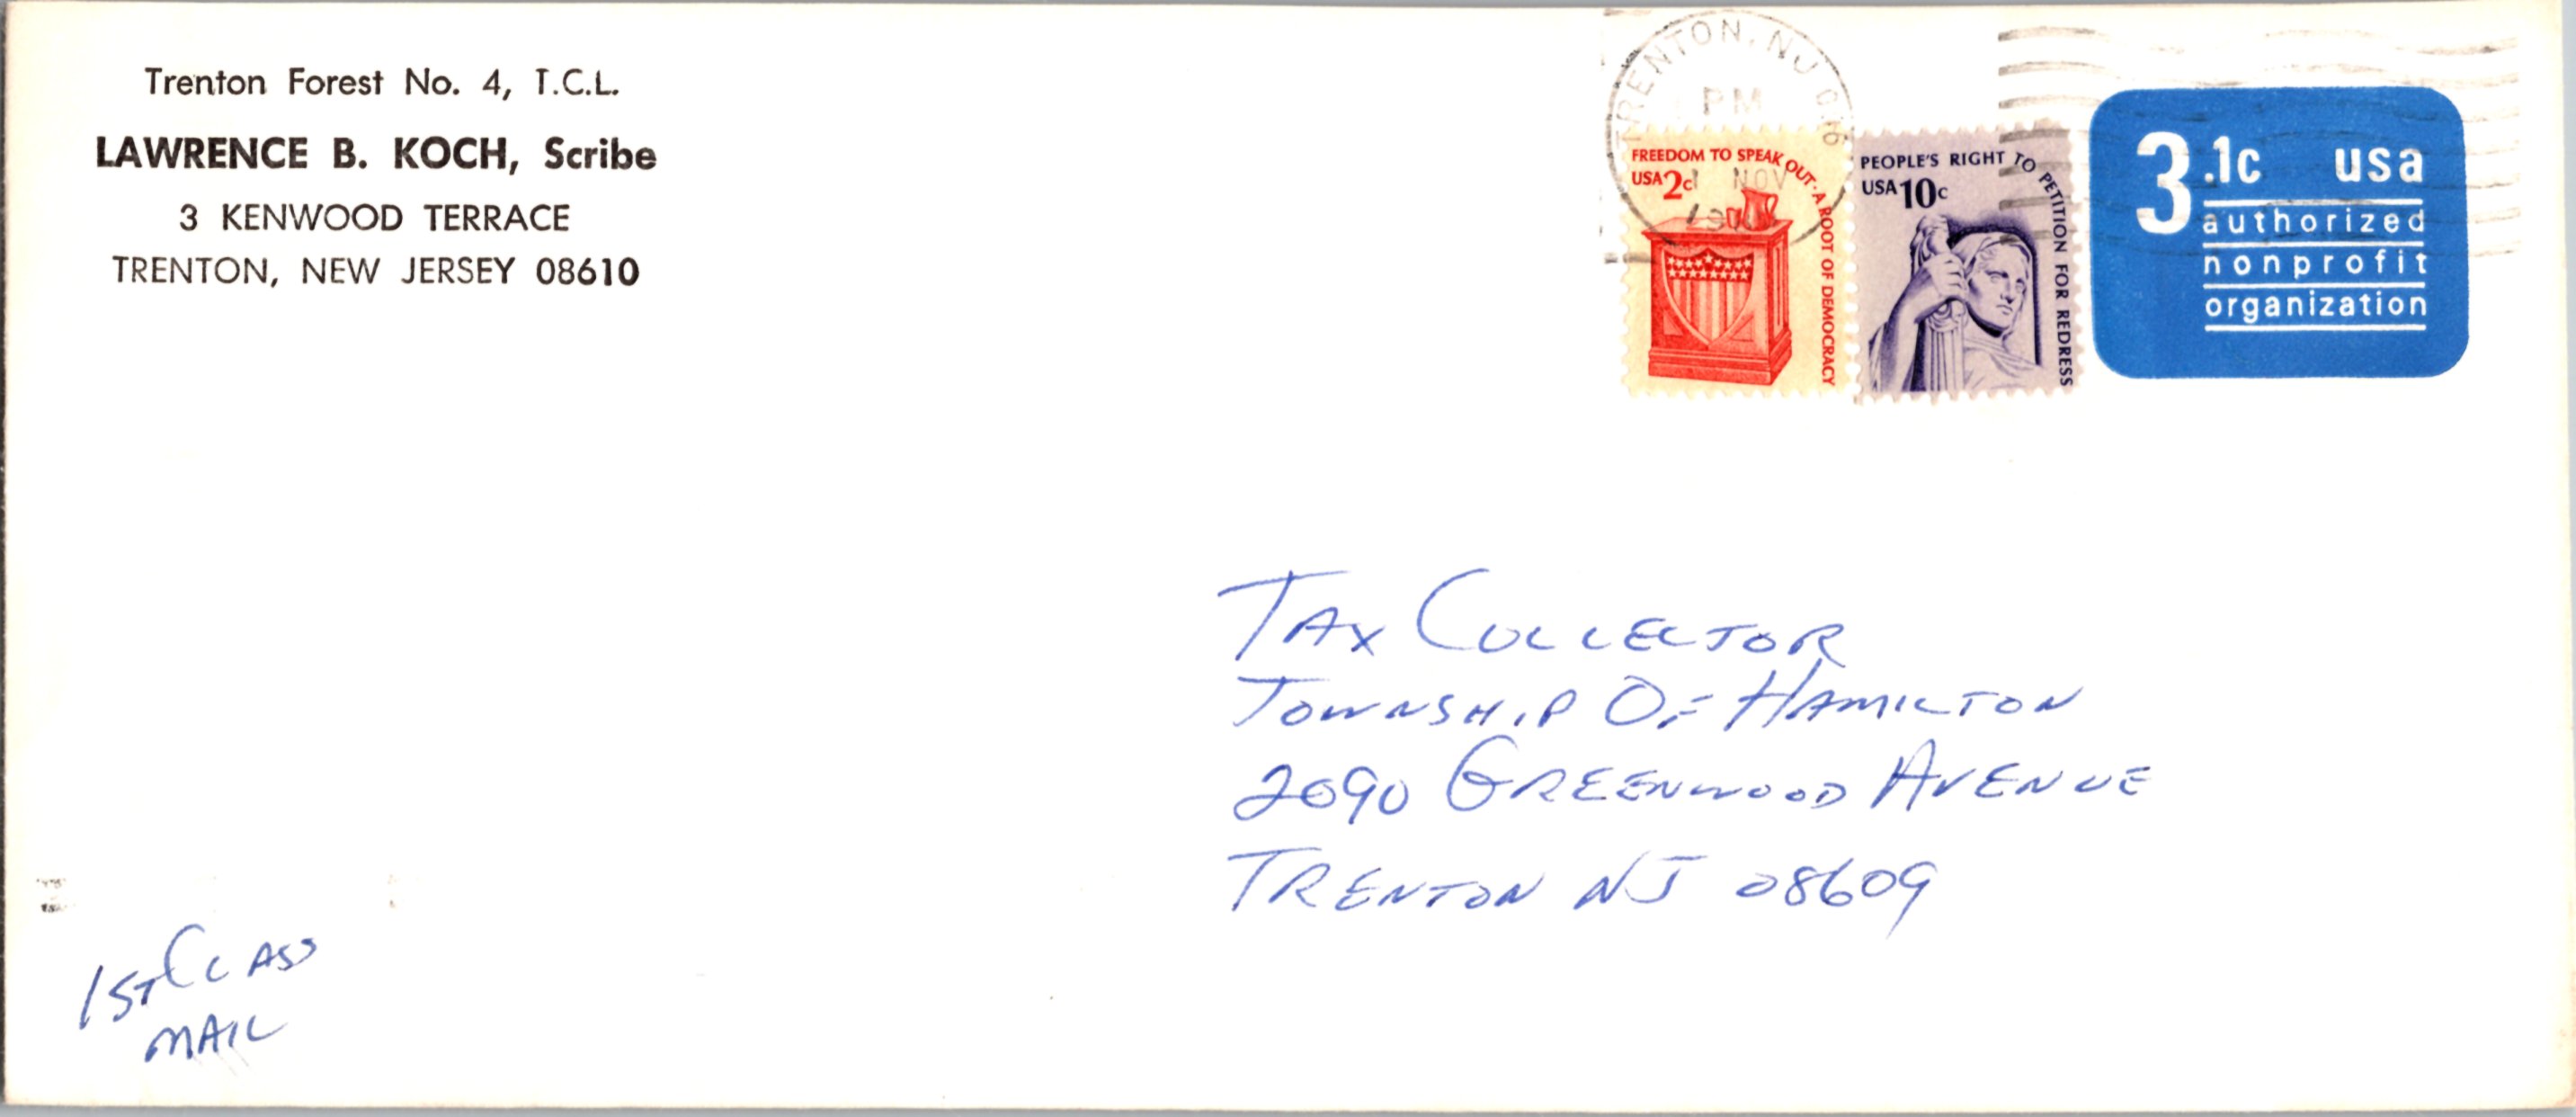 Trenton Forest No. 4, T.C.L.
LAWRENCE B. KOCH, Scribe
3 KENWOOD TERRACE
TRENTON, NEW JERSEY 08610
TRENTON, NJ
PM
1 NOV
FREEDOM TO SPEAK OUT · A ROOT OF DEMOCRACY
USA 2c
PEOPLE'S RIGHT TO PETITION FOR REDRESS
USA 10c
3.1c usa
authorized
nonprofit
organization
TAX COLLECTOR
TOWNSHIP OF HAMILTON
2090 GREENWOOD AVENUE
TRENTON NJ 08609
1ST CLASS
MAIL